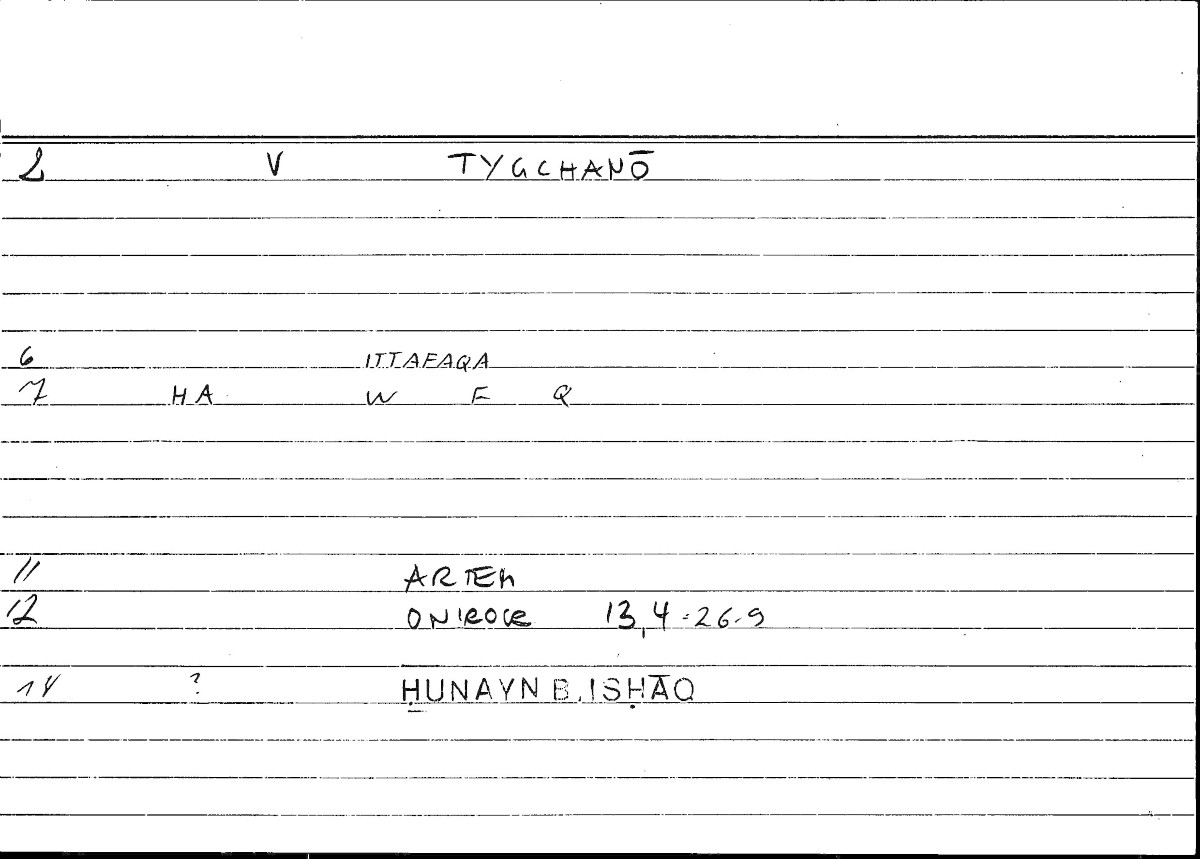 2 V TYGCHANŌ
6 ITTAFAQA
7 HA W F Q
11 ARTEM
12 ONIROCR 13,4 = 26.9
14 ? ḤUNAYN B. ISḤĀQ